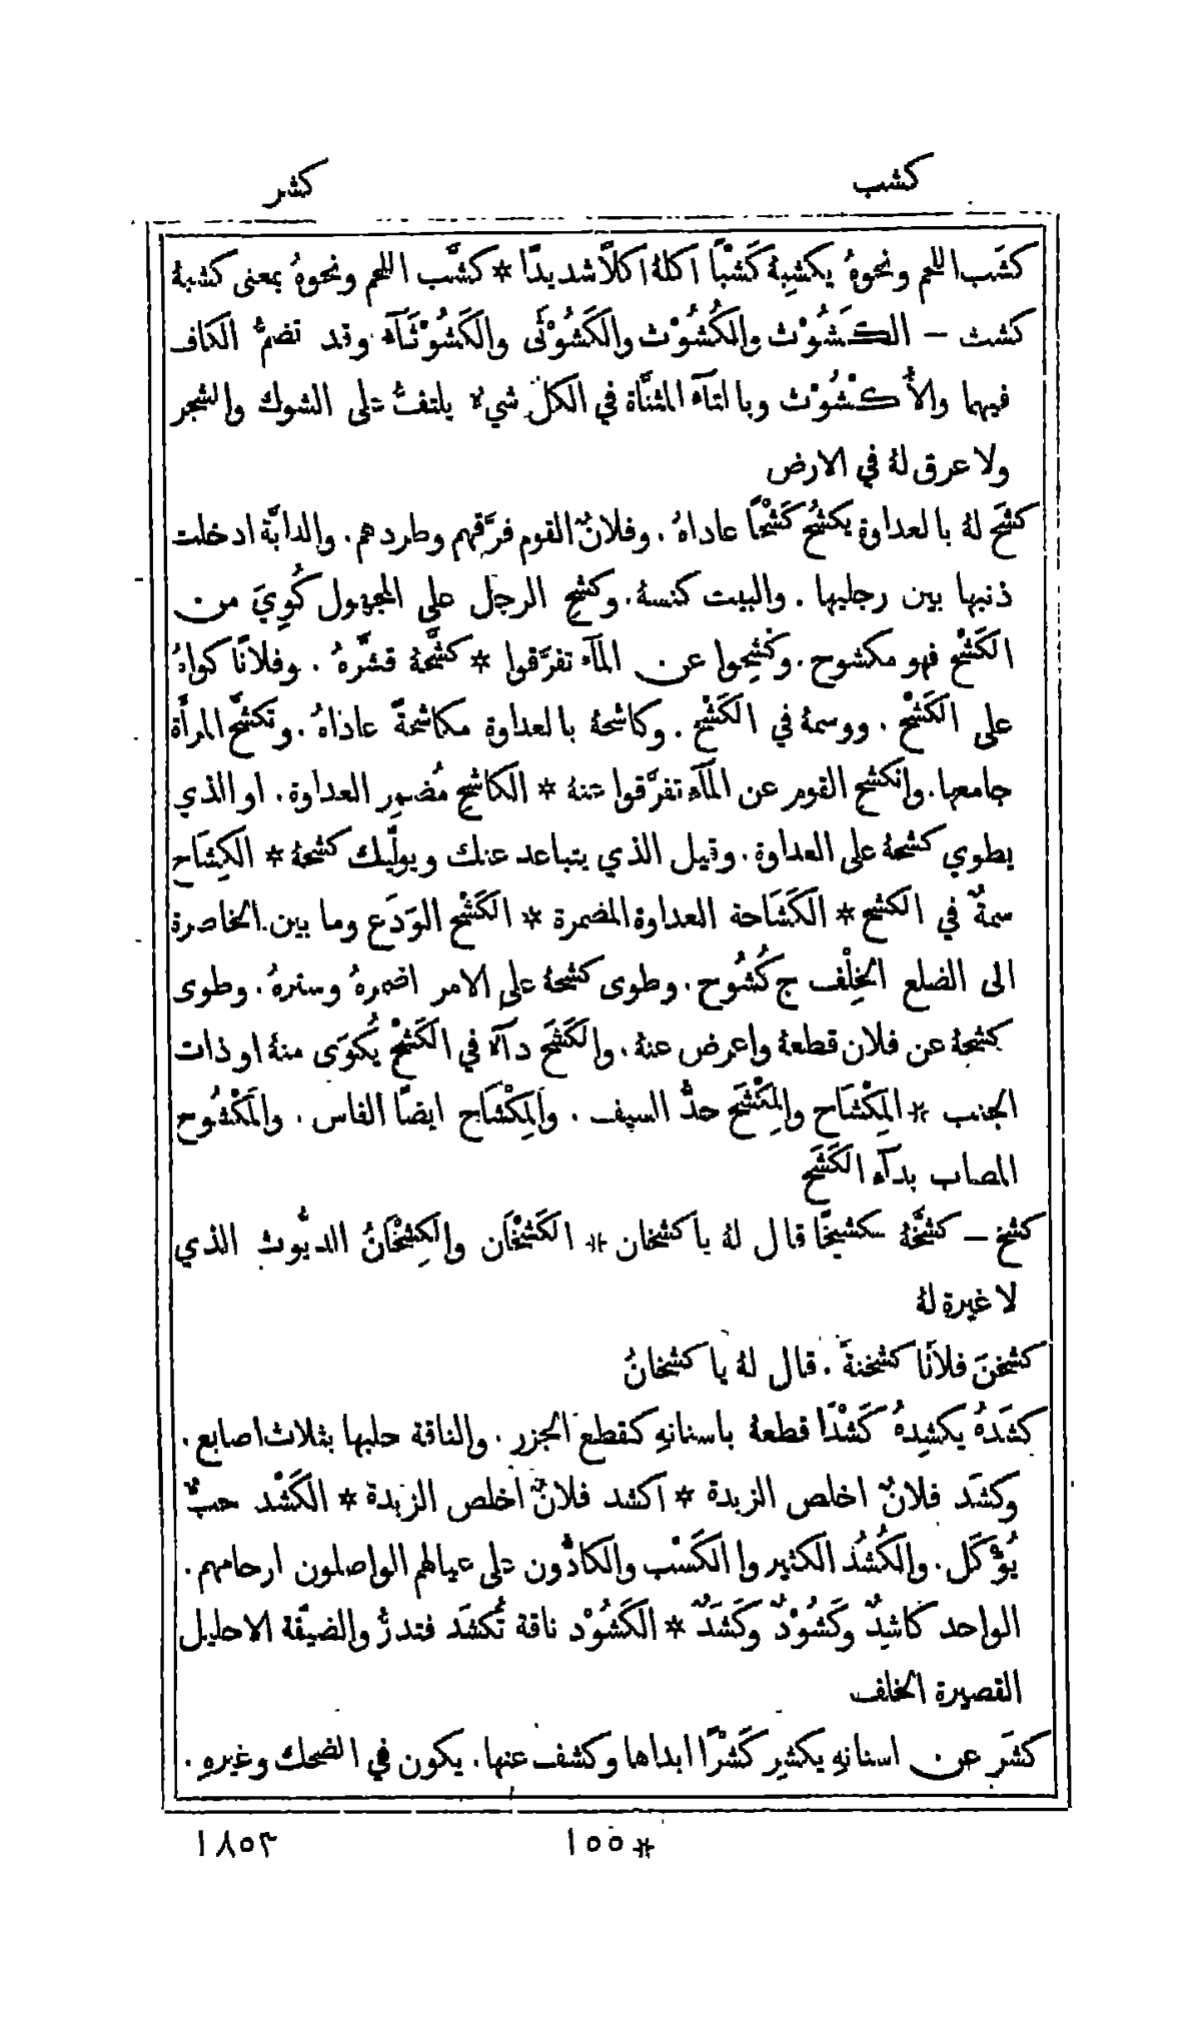 كشب
كشر
كشَب اللحم ونحوهُ يكشِبهُ كَشْبًا اكلهُ اكلًا شديدًا * كشَّب اللحم ونحوهُ بمعنى كشبهُ
كشث – الكَشُوْث والكُشُوْث والكَشُوْثَى والكَشُوْثَآء وقد تضمُّ الكاف
فيهما والأُكْشُوْث وبالتآء المثنَّاة في الكل شيء يلتفُّ على الشوك والشجر
ولا عرق لهُ في الارض
كشَح لهُ بالعداوة يكشَح كَشْحًا عاداهُ . وفلانٌ القوم فرَّقهم وطردهم . والدابَّة ادخلت
ذنبها بين رجليها . والبيت كنسهُ . وكشح الرجل على المجهول كُوِيَ من
الكَشْح فهو مكشوح . وكشِحوا عن المآء تفرَّقوا * كشَّحهُ قشَّرهُ . وفلانًا كواهُ
على الكَشْح . ووسمهُ في الكَشْح . وكاشحهُ بالعداوة مكاشحةً عاداهُ . وتكشَّح المرأة
جامعها . وانكشح القوم عن المآء تفرَّقوا عنهُ * الكاشح مُضمِر العداوة . او الذي
يطوي كشحهُ على العداوة . وقيل الذي يتباعد عنك ويولّيك كشحهُ * الكِشَاح
سمةٌ في الكشح * الكَشَاحة العداوة المضمرة * الكَشْح الوَدَع وما بين الخاصرة
الى الضلع الخِلْف ج كُشُوح . وطوى كشحهُ على الامر اضمرهُ وسترهُ . وطوى
كشحهُ عن فلان قطعهُ واعرض عنهُ . والكَشَح دآء في الكَشْح يُكوَى منهُ او ذات
الجنب * المِكْشَاح والمِكْشَح حدُّ السيف . والمِكْشَاح ايضًا الفاس . والمَكْشُوح
المصاب بدآء الكَشَح
كشخ – كشَّخهُ تكشيخًا قال لهُ يا كشخان * الكَشْخَان والكِشْخَانُ الديُّوث الذي
لا غيرة لهُ
كشخنَ فلانًا كشخنةً . قال لهُ يا كشخانُ
كشَدَهُ يكشِدهُ كَشْدًا قطعهُ باسنانهِ كقطع الجزر . والناقة حلبها بثلاث اصابع .
وكشَد فلانٌ اخلص الزبدة * اكشد فلانٌ اخلص الزبدة * الكَشْد حبٌّ
يُؤكَل . والكُشُد الكثير وا الكَسْب والكادُّون على عيالهم الواصلون ارحامهم .
الواحد كاشِدٌ وكَشُوْدٌ وكَشَدٌ * الكَشُوْد ناقة تُكشَد فتدرُّ والضيّقة الاحليل
القصيرة الخلف
كشَر عن اسنانهِ يكشِر كَشْرًا ابداها وكشف عنها . يكون في الضحك وغيرهِ .
*١٥٥
١٨٥٣